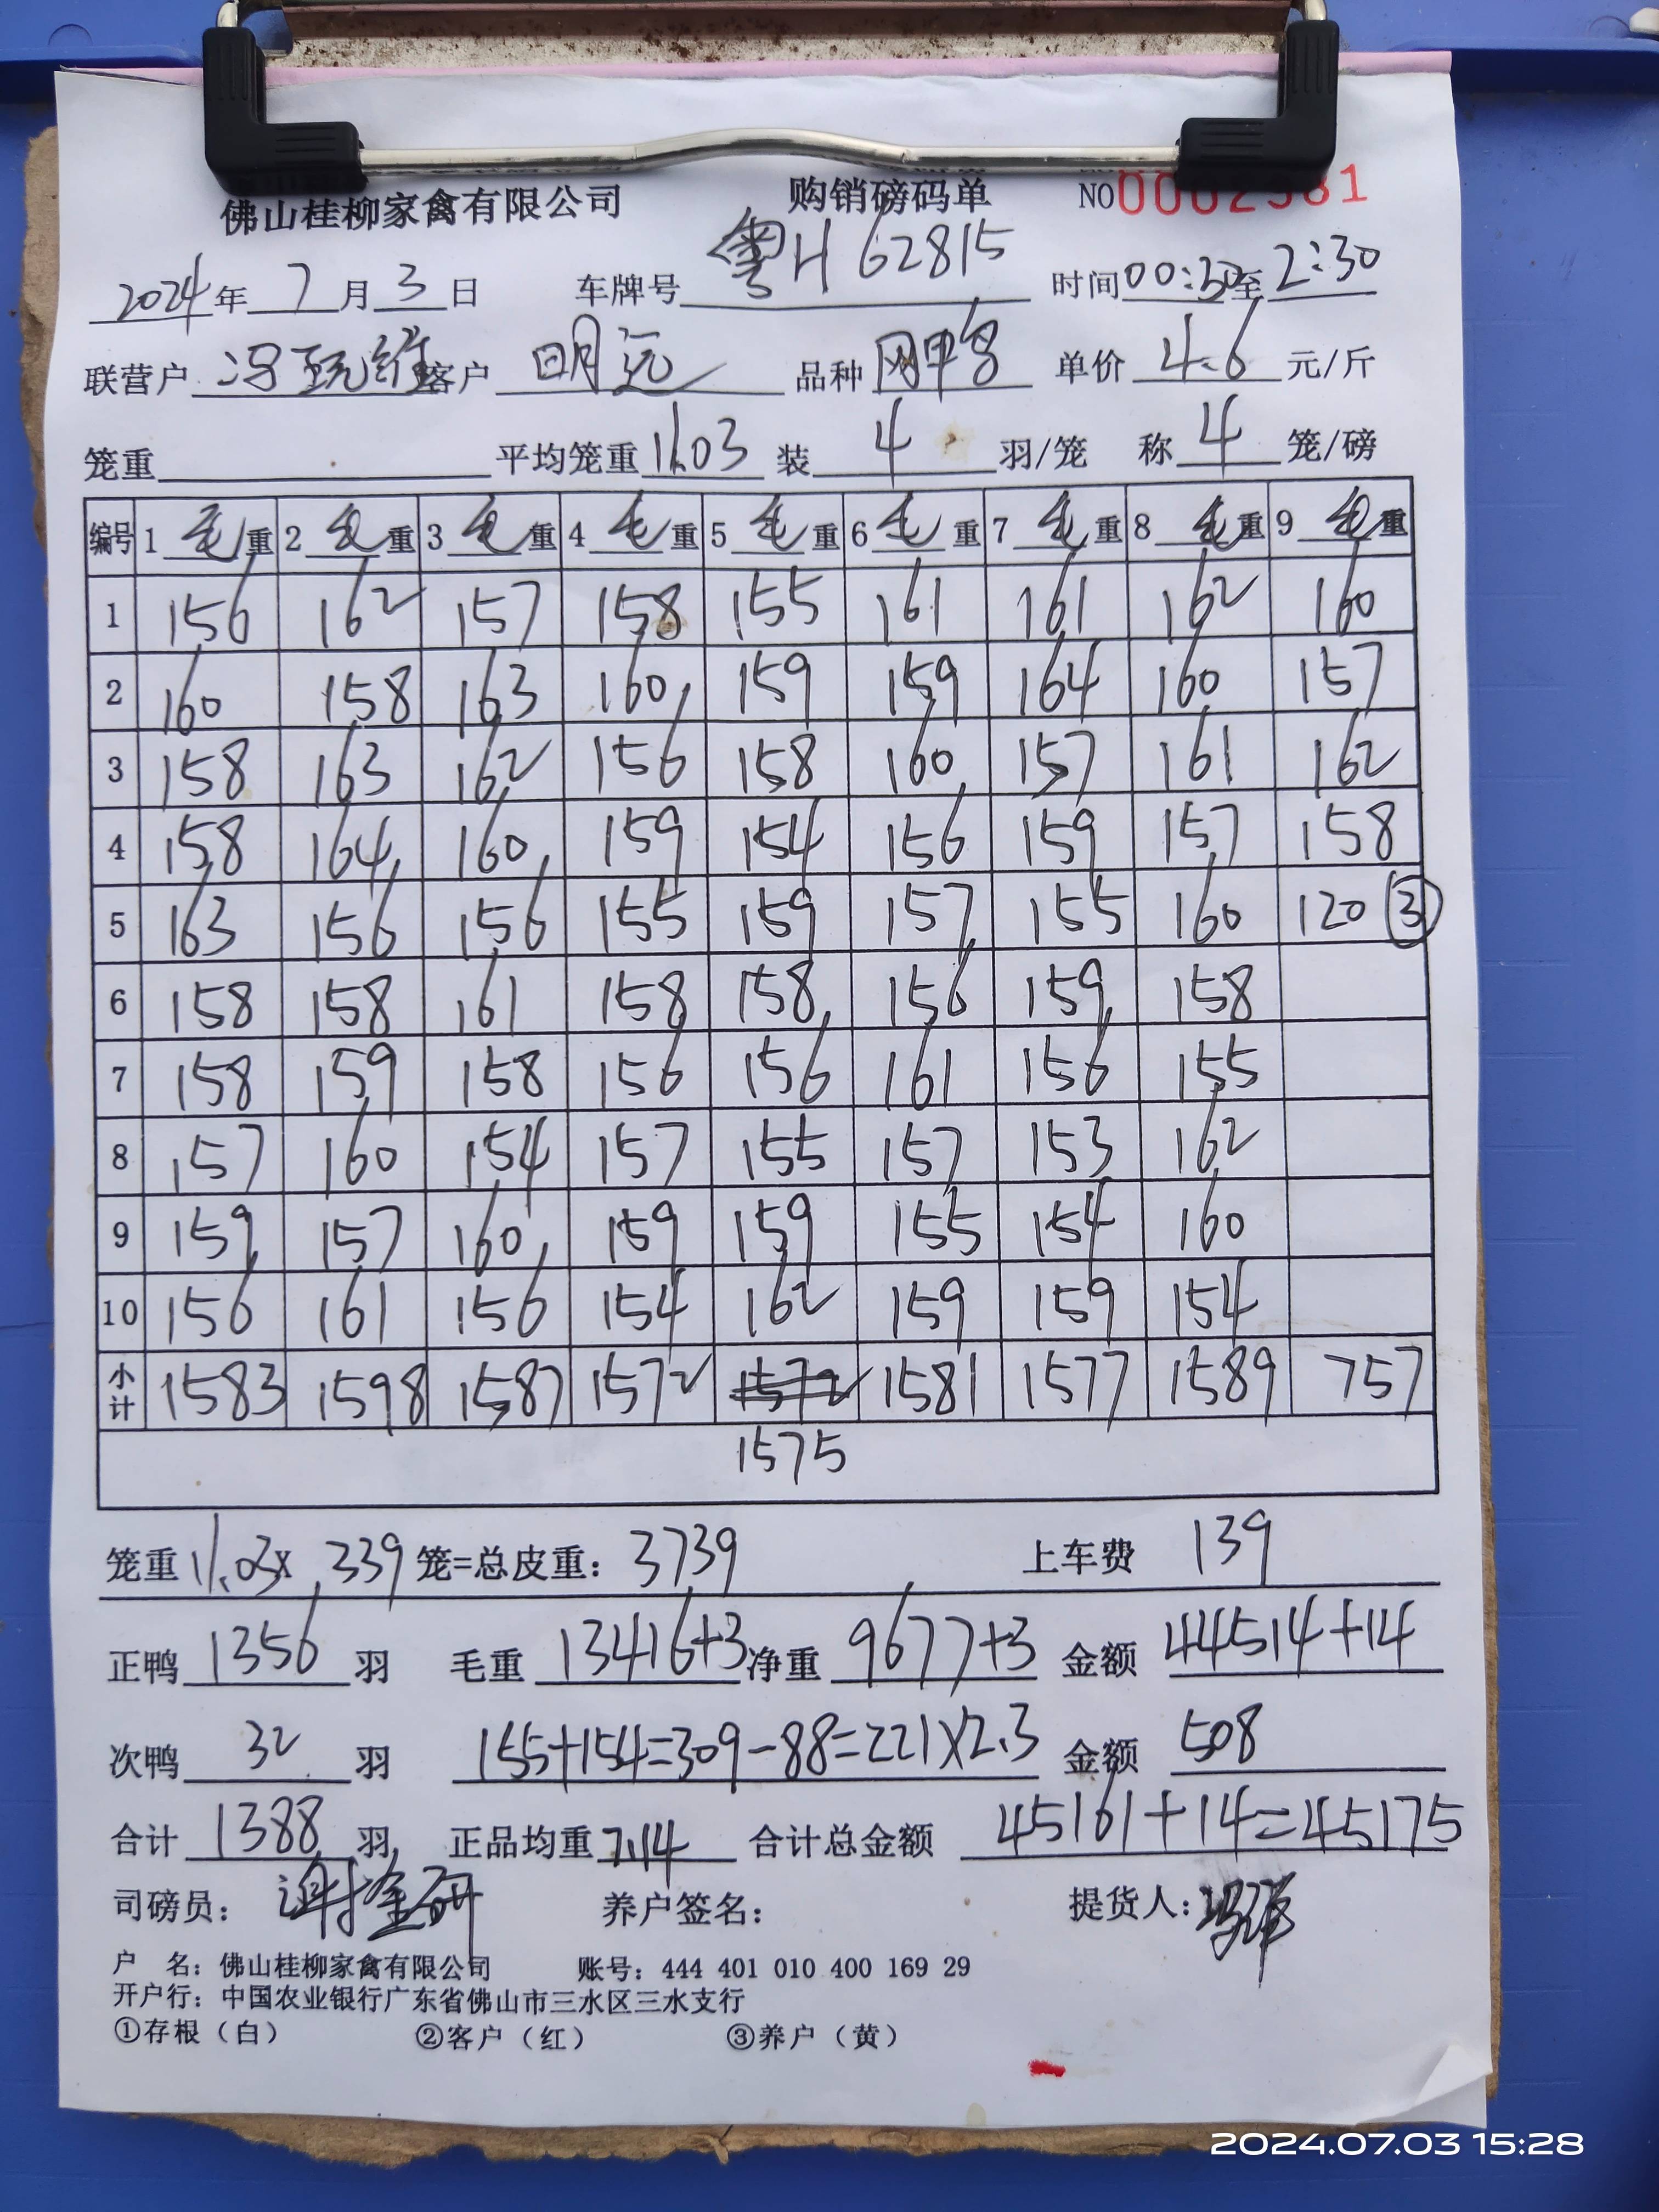 佛山桂柳家禽有限公司 购销磅码单 NO
2024年7月3日 车牌号 粤H62815 时间 00:30至2:30
联营户 客户 明远 品种 单价 4.6 元/斤
笼重 平均笼重 11.03 装 4 羽/笼 称 4 笼/磅
编号 1 毛重 2 毛重 3 毛重 4 毛重 5 毛重 6 毛重 7 毛重 8 毛重 9 毛重
1 156 162 157 158 155 161 161 162 160
2 160 158 163 160 159 159 164 160 157
3 158 163 162 156 158 160 157 161 162
4 158 164 160 159 154 156 159 157 158
5 163 156 156 155 159 157 155 160 120 ③
6 158 158 161 158 158 156 159 158
7 158 159 158 156 156 161 156 155
8 157 160 154 157 155 157 153 162
9 159 157 160 159 159 155 154 160
10 156 161 156 154 162 159 159 154
小计 1583 1598 1587 1572 1572 1581 1577 1589 757
1575
笼重 11.03x 339 笼=总皮重: 3739 上车费 139
正鸭 1356 羽 毛重 13416+3 净重 9677+3 金额 44514+14
次鸭 32 羽 155+154=309-88=221×2.3 金额 508
合计 1388 羽 正品均重 7.14 合计总金额 45161+14=45175
司磅员: 养户签名: 提货人:
户 名: 佛山桂柳家禽有限公司 账号: 444 401 010 400 169 29
开户行: 中国农业银行广东省佛山市三水区三水支行
①存根(白) ②客户(红) ③养户(黄)
2024.07.03 15:28